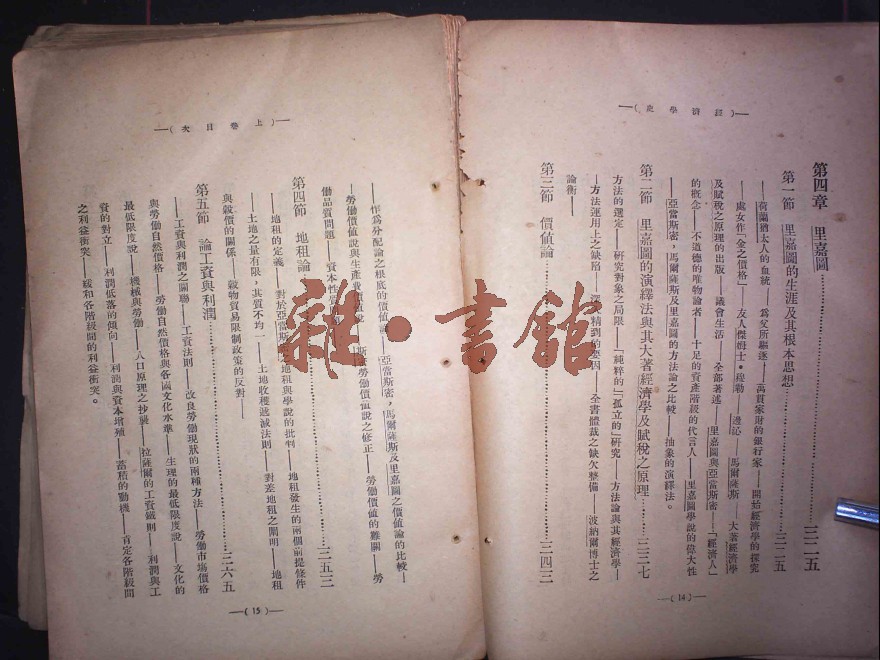 —(經濟學史)—
第四章 里嘉圖……三二五
第一節 里嘉圖的生涯及其根本思想……三二五
——荷蘭猶太人的血統——爲父所驅逐——萬貫家財的銀行家——開始經濟學的探究
——處女作「金之價格」——友人傑姆士・穆勒 邊沁 馬爾薩斯——大著經濟學
及賦稅之原理的出版——議會生活——全部著述——里嘉圖與亞當斯密——「經濟人」
的概念——不道德的唯物論者——十足的資產階級的代言人——里嘉圖學說的偉大性
——亞當斯密,馬爾薩斯及里嘉圖的方法論之比較——抽象的演繹法。
第二節 里嘉圖的演繹法與其大著經濟學及賦稅之原理……三三七
方法的選定——研究對象之局限——「純粹的」「孤立的」研究——方法論與其經濟學——
方法運用上之缺陷——深入精到的要因——全書體裁之缺欠整備——波納爾博士之
論衡——
第三節 價値論……三四三
—(14)—
—(上卷目次)—
——作爲分配論之根底的價値論——亞當斯密,馬爾薩斯及里嘉圖之價値論的比較——
——勞働價値說與生產費價値說——斯密勞働價値說之修正——勞働價値的難關——勞
働品質問題——資本性質
第四節 地租論……三五三
——地租的定義——對於亞當斯密的地租與學說的批判——地租發生的兩個前提條件
——土地之量有限,其質不均一——土地收穫遞減法則——對差地租之闡明——地租
與穀價的關係——穀物貿易限制政策的反對——
第五節 論工資與利潤……三六五
——工資與利潤之關聯——工資法則——改良勞働現狀的兩種方法——勞働市場價格
與勞働自然價格——勞働自然價格與各國文化水準——生理的最低限度說——文化的
最低限度說——機械與勞働——人口原理之抄襲——拉薩爾的工資鐵則——利潤與工
資的對立——利潤低落的傾向——利潤與資本增殖——蓄積的動機——肯定各階級間
之利益衝突——緩和各階級間的利益衝突。
—(15)—
雜・書館